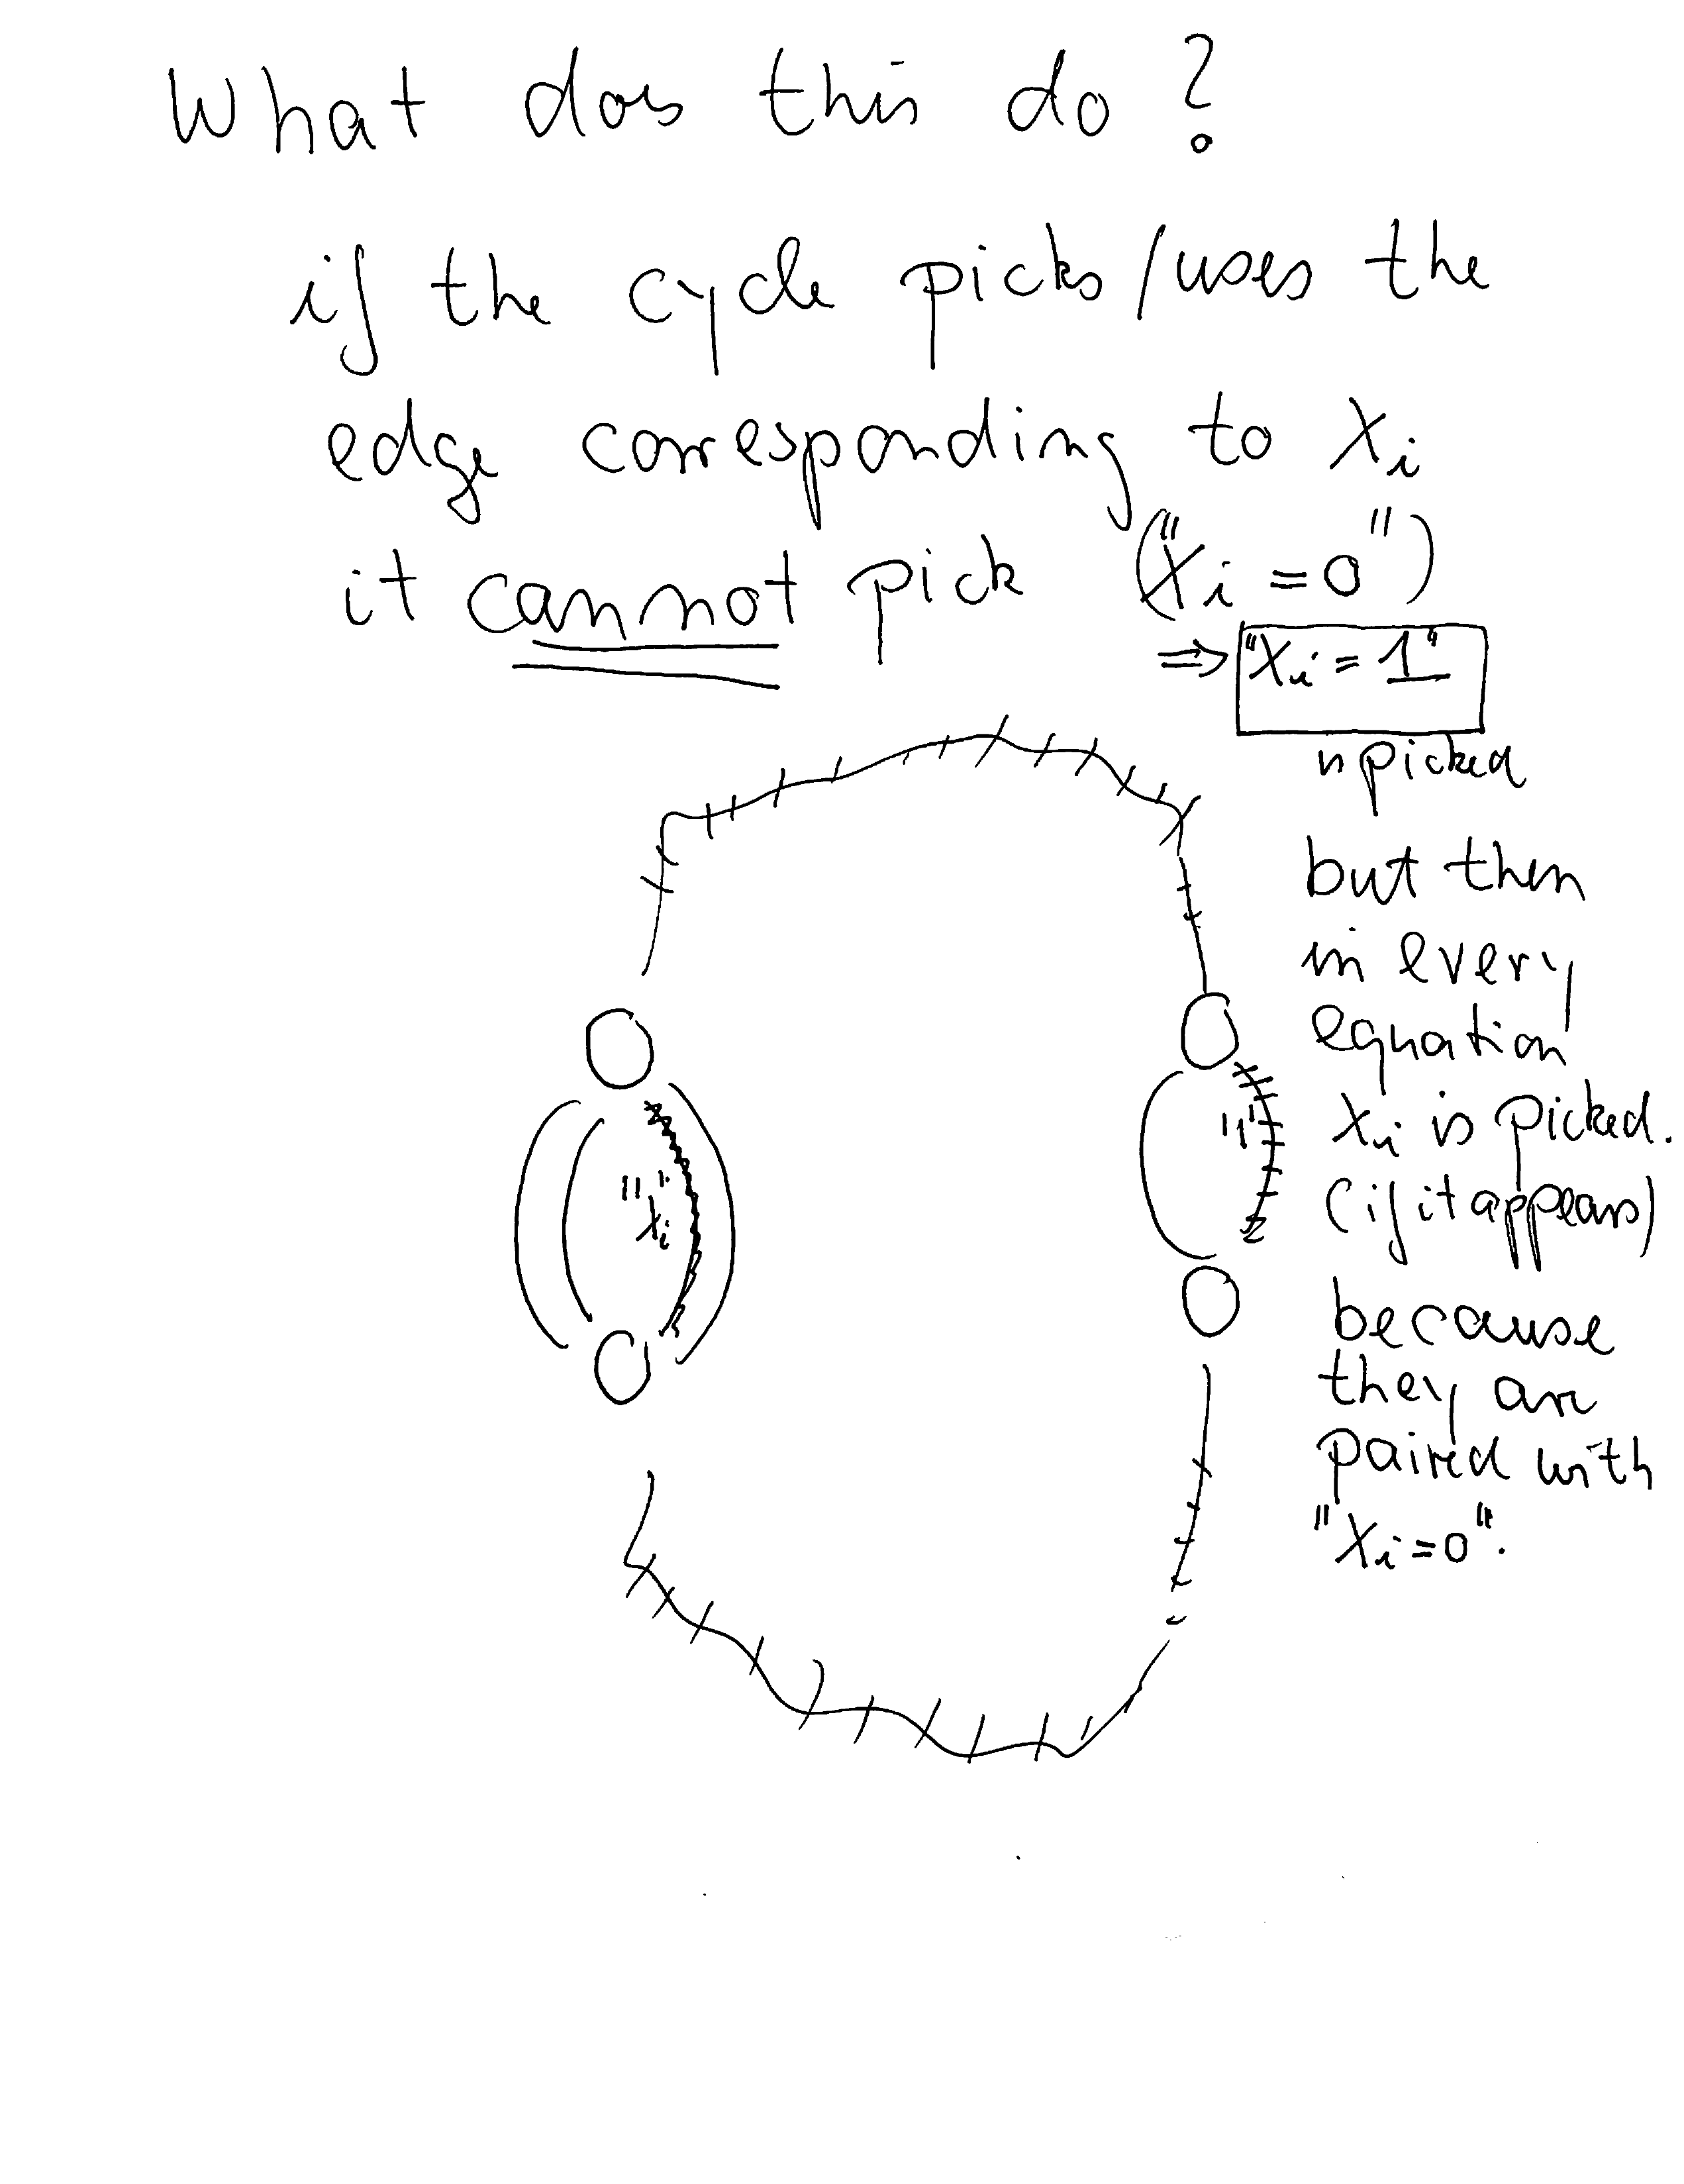 What does this do?
if the cycle picks/uses the
edge corresponding to xi
it cannot pick ("xi = 0")
⇒ "xi = 1"
is picked
but then
in every
equation
xi is picked.
(if it appears)
because
they are
paired with
"xi = 0".
"xi"
"1"